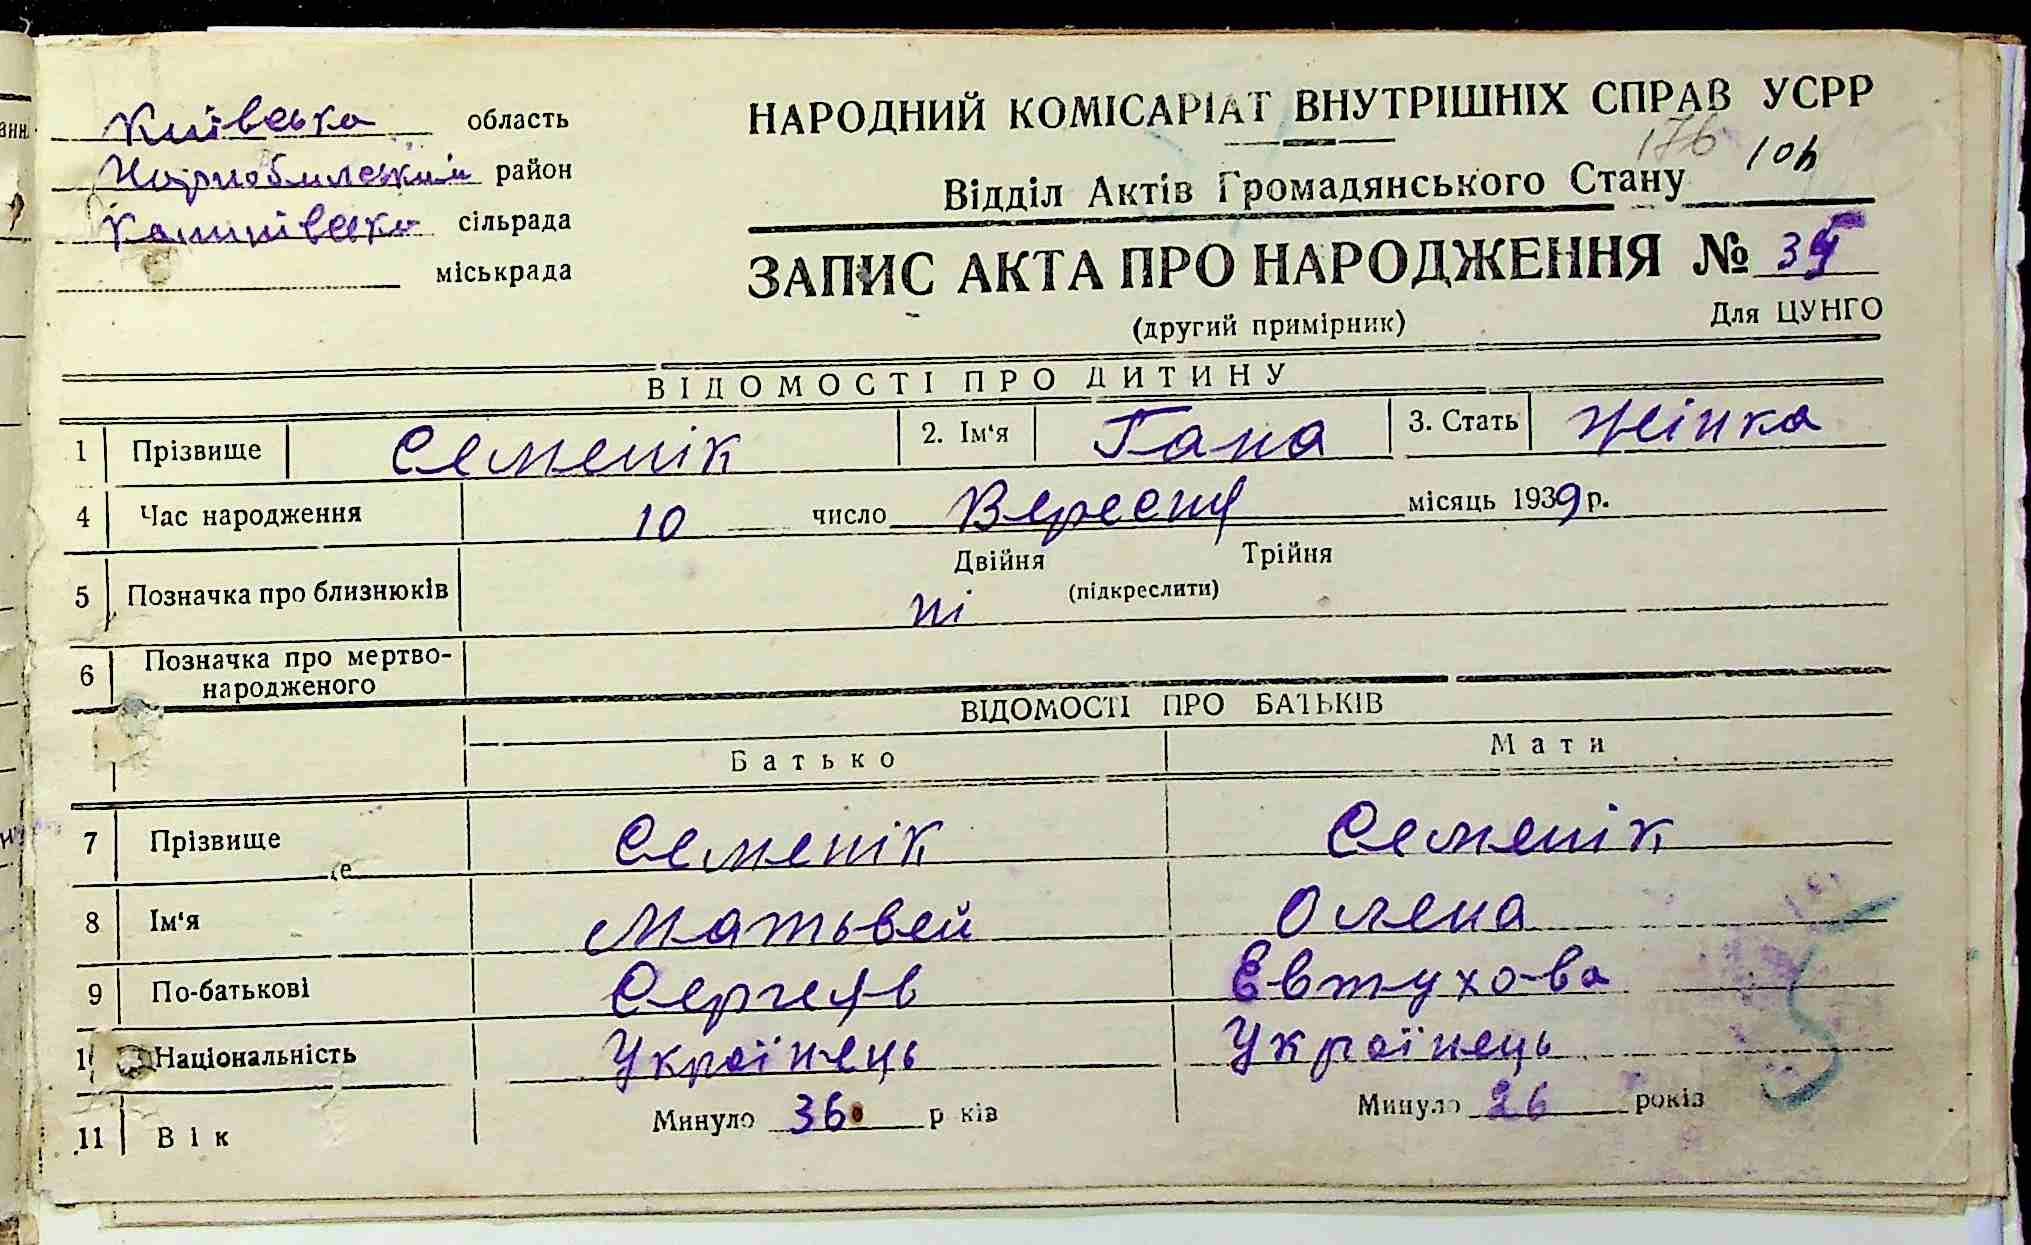 Київська область
Чорнобилский район
сільрада
міськрада
НАРОДНИЙ КОМІСАРІАТ ВНУТРІШНІХ СПРАВ УСРР
176
Відділ Актів Громадянського Стану
ЗАПИС АКТА ПРО НАРОДЖЕННЯ №
(другий примірник) Для ЦУНГО
ВІДОМОСТІ ПРО ДИТИНУ
1 Прізвище Семенік 2. Ім'я Гана 3. Стать жінка
4 Час народження 10 число Вересня місяць 1939 р.
Двійня Трійня
5 Позначка про близнюків (підкреслити)
ні
6 Позначка про мертво-
народженого
ВІДОМОСТІ ПРО БАТЬКІВ
Батько Мати
7 Прізвище Семенік Семенік
8 Ім'я Матьвей Олена
9 По-батькові Сергеяв Евтухова
10 Національність Українець Українець
11 Вік Минуло 36 р ків Минуло 26 років